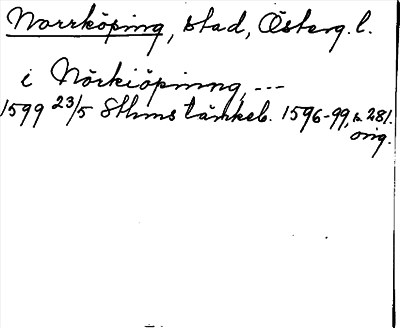 Norrköping, stad, Österg. l.
i Nörkiöpinng, ---
1599 23/5 Sthms tänkeb. 1596-99, s. 281.
orig.